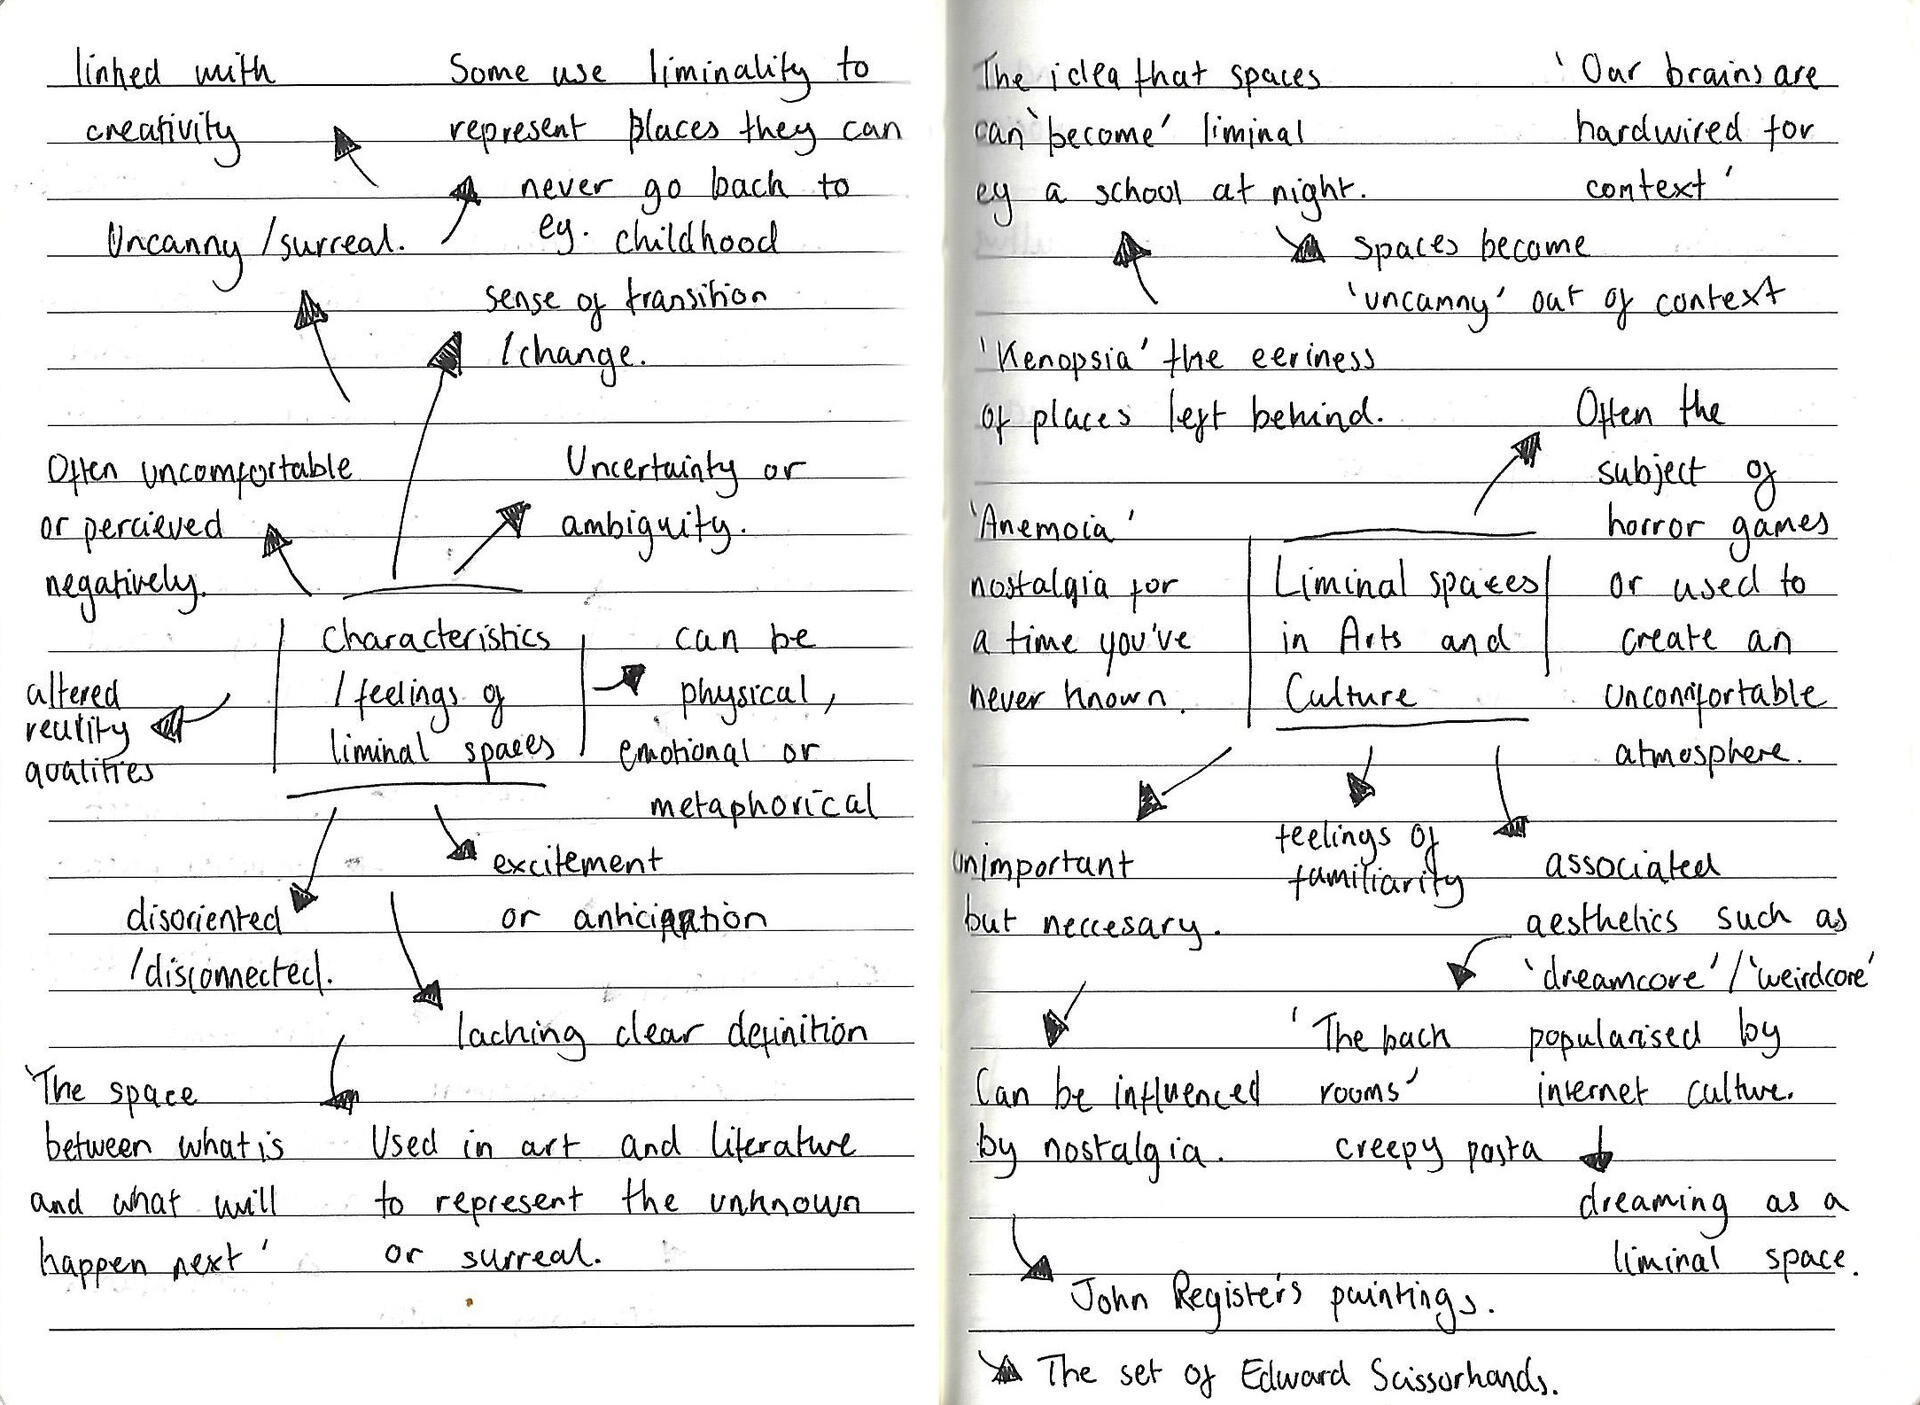 linked with
creativity
Some use liminality to
represent places they can
never go back to
eg. childhood
Uncanny / surreal.
sense of transition
/ change.
Often uncomfortable
or percieved
negatively.
Uncertainty or
ambiguity.
Characteristics
/ feelings of
liminal spaces
can be
physical,
emotional or
metaphorical
altered
reality
qualities
disoriented
/disconnected.
excitement
or anticipation
lacking clear definition
'The space
between what is
and what will
happen next'
Used in art and literature
to represent the unknown
or surreal.
The idea that spaces
can 'become' liminal
eg a school at night.
'Our brains are
hardwired for
context'
spaces become
'uncanny' out of context
'Kenopsia' the eeriness
of places left behind.
Often the
subject of
horror games
or used to
create an
uncomfortable
atmosphere.
'Anemoia'
nostalgia for
a time you've
never known.
Liminal spaces
in Arts and
Culture
unimportant
but neccesary.
feelings of
familiarity
associated
aesthetics such as
'dreamcore' / 'weirdcore'
popularised by
internet culture.
'The back
rooms'
creepy pasta
Can be influenced
by nostalgia.
dreaming as a
liminal space.
John Register's paintings.
The set of Edward Scissorhands.